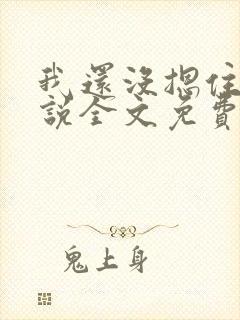 我還沒摁住
說全文免費
鬼上身